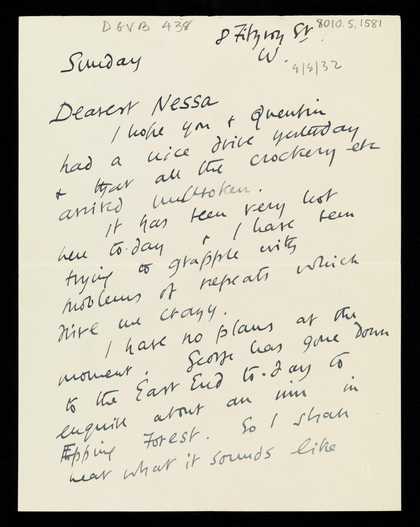 DGVB 438
8010.5.1581
8 Fitzroy St
W.
Sunday
4/9/32
Dearest Nessa
I hope you & Quentin
had a nice drive yesterday
& that all the crockery etc
arrived unbroken.
It has been very hot
here to-day & I have been
trying to grapple with
problems of repeats which
drive me crazy.
I have no plans at the
moment. George has gone down
to the East End to-day to
enquire about an inn in
Epping Forest. So I shall
hear what it sounds like